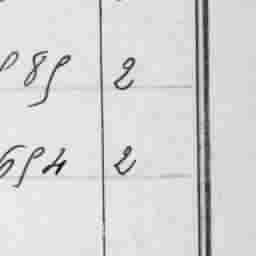 89 2
694 2